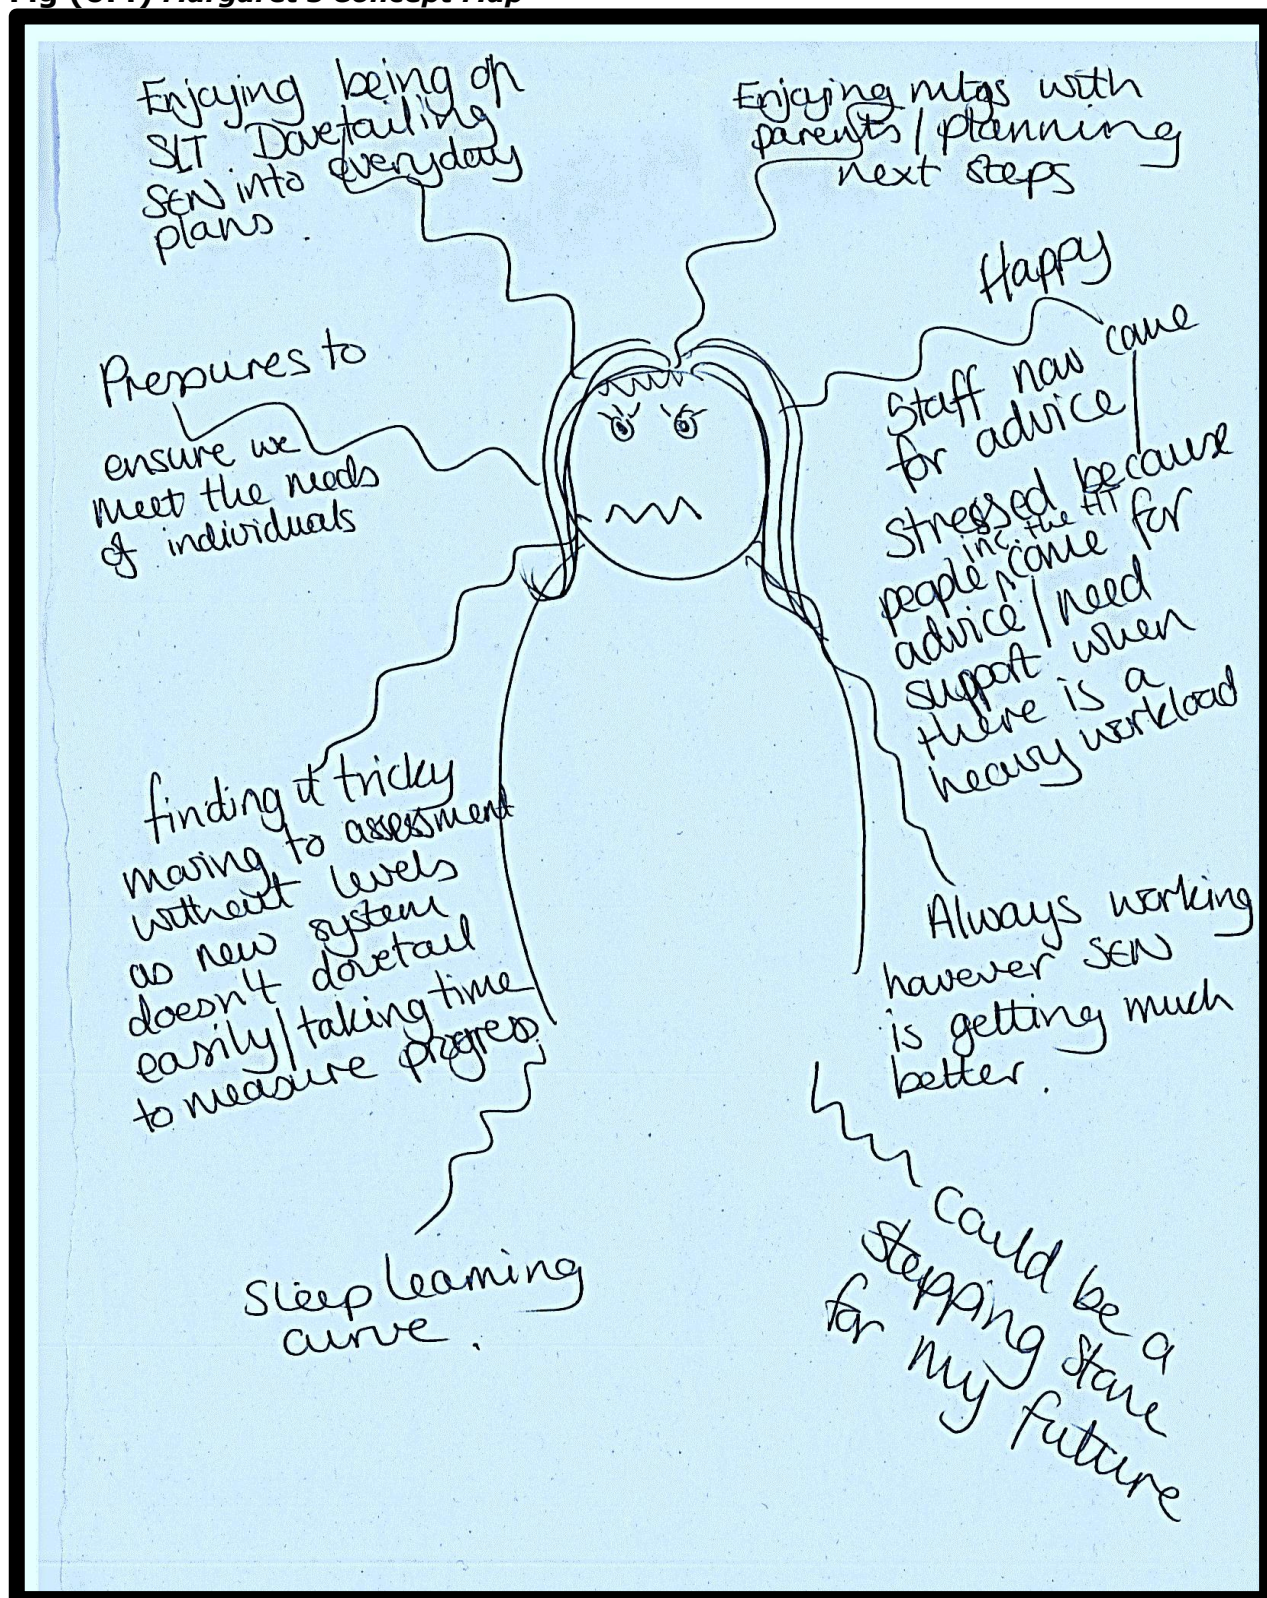 Fig (6.4) Margaret's Concept Map
Enjoying being on
SLT Dovetailing
SEN into everyday
plans.
Enjoying mtgs with
parents / planning
next steps
Happy
Staff now come
for advice /
stressed because
inc. the HT
people come for
advice / need
support when
there is a
heavy workload
Pressures to
ensure we
meet the needs
of individuals
finding it tricky
moving to assessment
without levels
as new system
doesn't dovetail
easily / taking time
to measure progress
Always working
however SEN
is getting much
better.
Steep learning
curve.
Could be a
stepping stone
for my future